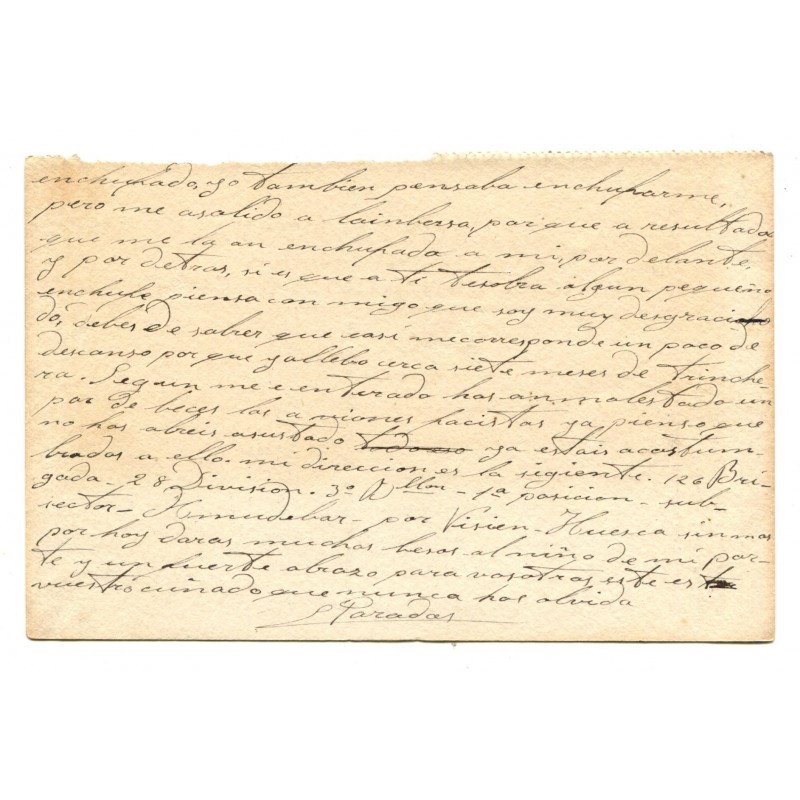 enchufado, yo tambien pensaba enchufarme,
pero me a salido a lainbersa, por que a resultado
que me la an enchufado a mi, por delante,
y por detras, si es que a ti tesobra algun pequeño
enchufe piensa con migo que soy muy desgracia
do, debes de saber que casi mecorresponde un poco de
descanso por que yallebo cerca siete meses de trinche
ra. Segun me e enterado hos an molestado un
par de beces los aviones facistas ya pienso que
no hos abreis asustado ya estais acostum-
brados a ello. mi direccion es la sigiente. 126 Bri-
gada - 28 Division. 3º Bllon - 1ª posicion - sub-
sector - Almudebar - por Visien - Huesca sin mas
por hoy daras muchos besos al niño de mi par-
te y un fuerte abrazo para vosotros, este es
vuestro cuñado que nunca hos olvida
Paradas